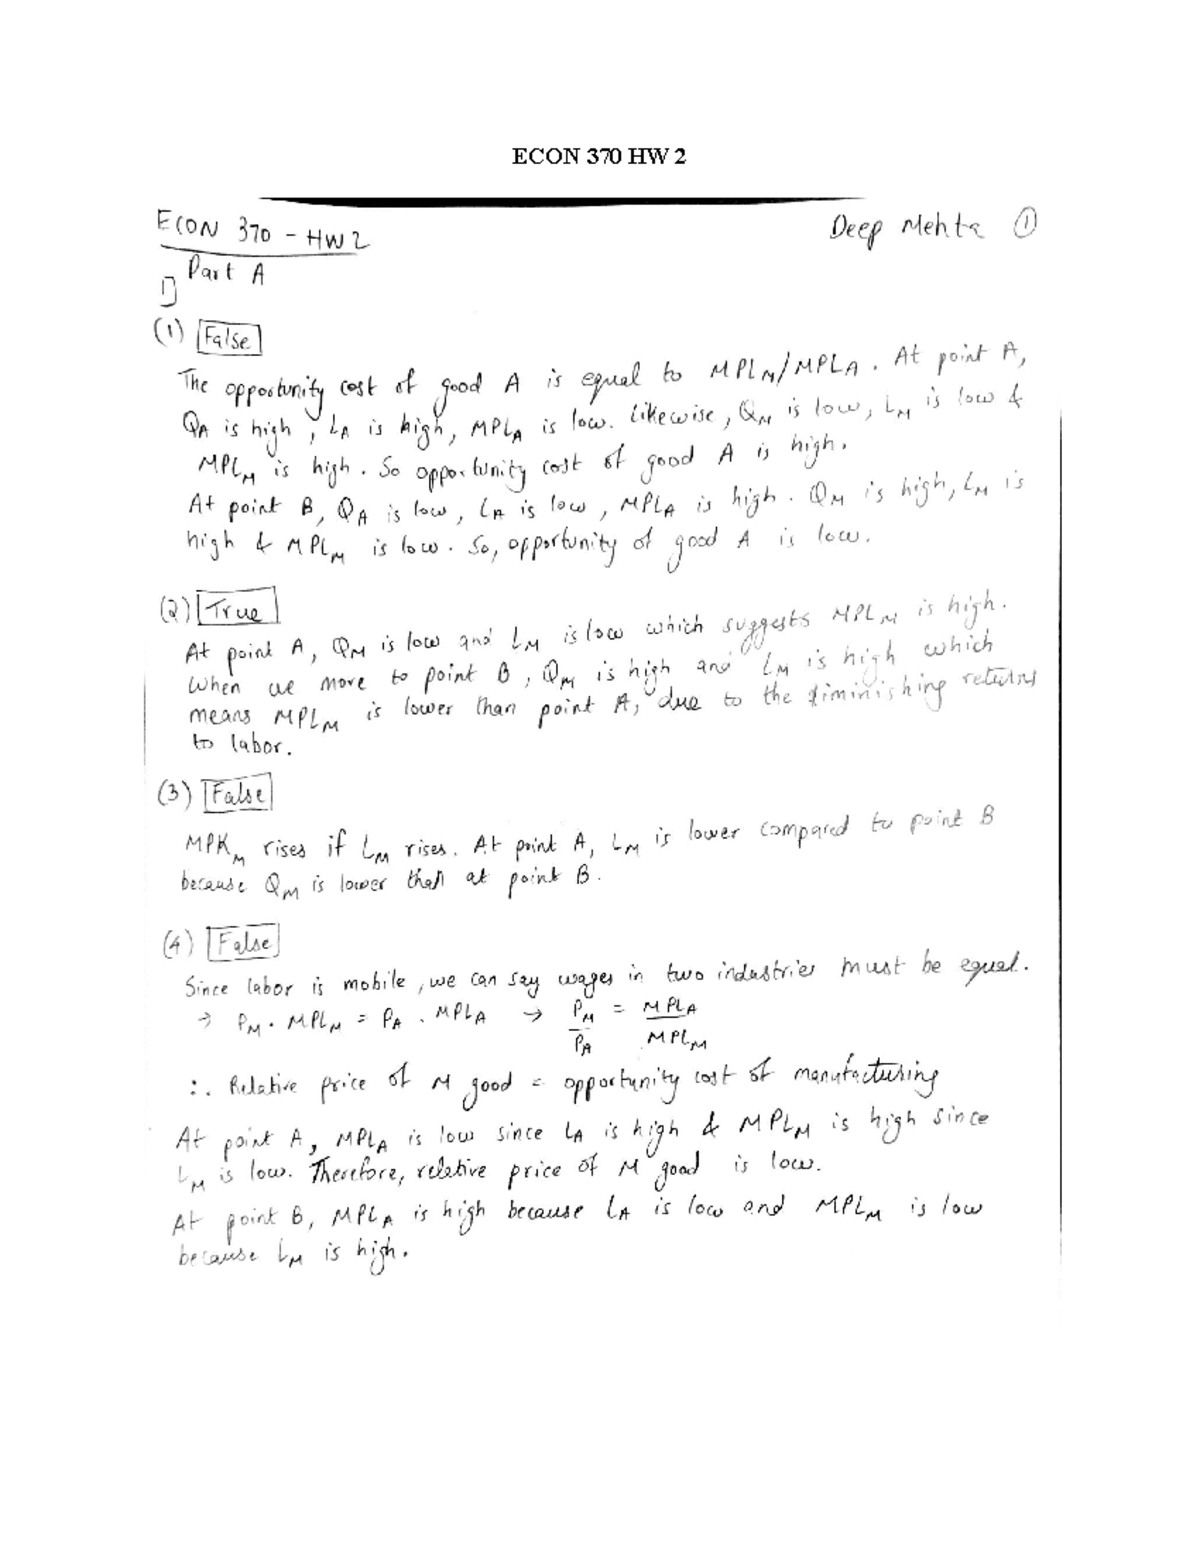 ECON 370 HW 2
ECON 370 - HW2
Deep Mehta ①
Part A
1]
(1) False
The opportunity cost of good A is equal to MPLM/MPLA. At point A,
QA is high, LA is high, MPLA is low. Likewise, QM is low, LM is low &
MPLM is high. So opportunity cost of good A is high.
At point B, QA is low, LA is low, MPLA is high. QM is high, LM is
high & MPLM is low. So, opportunity of good A is low.
(2) True
At point A, QM is low and LM is low which suggests MPLM is high.
When we move to point B, QM is high and LM is high which
means MPLM is lower than point A, due to the diminishing returns
to labor.
(3) False
MPKM rises if LM rises. At point A, LM is lower compared to point B
because QM is lower than at point B.
(4) False
Since labor is mobile, we can say wages in two industries must be equal.
→ PM . MPLM = PA . MPLA → PM/PA = MPLA/MPLM
∴ Relative price of M good = opportunity cost of manufacturing
At point A, MPLA is low since LA is high & MPLM is high since
LM is low. Therefore, relative price of M good is low.
At point B, MPLA is high because LA is low and MPLM is low
because LM is high.